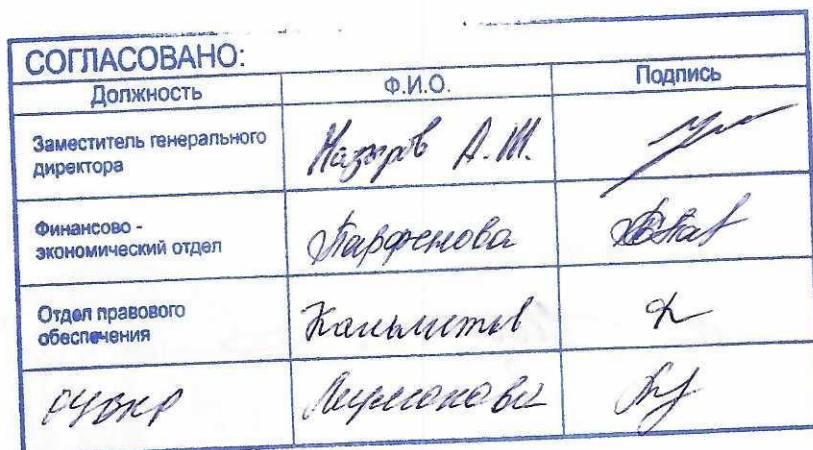 СОГЛАСОВАНО:
Должность Ф.И.О. Подпись
Заместитель генерального
директора
Назыров А.Ш.
Финансово -
экономический отдел
Парфенова
Отдел правового
обеспечения